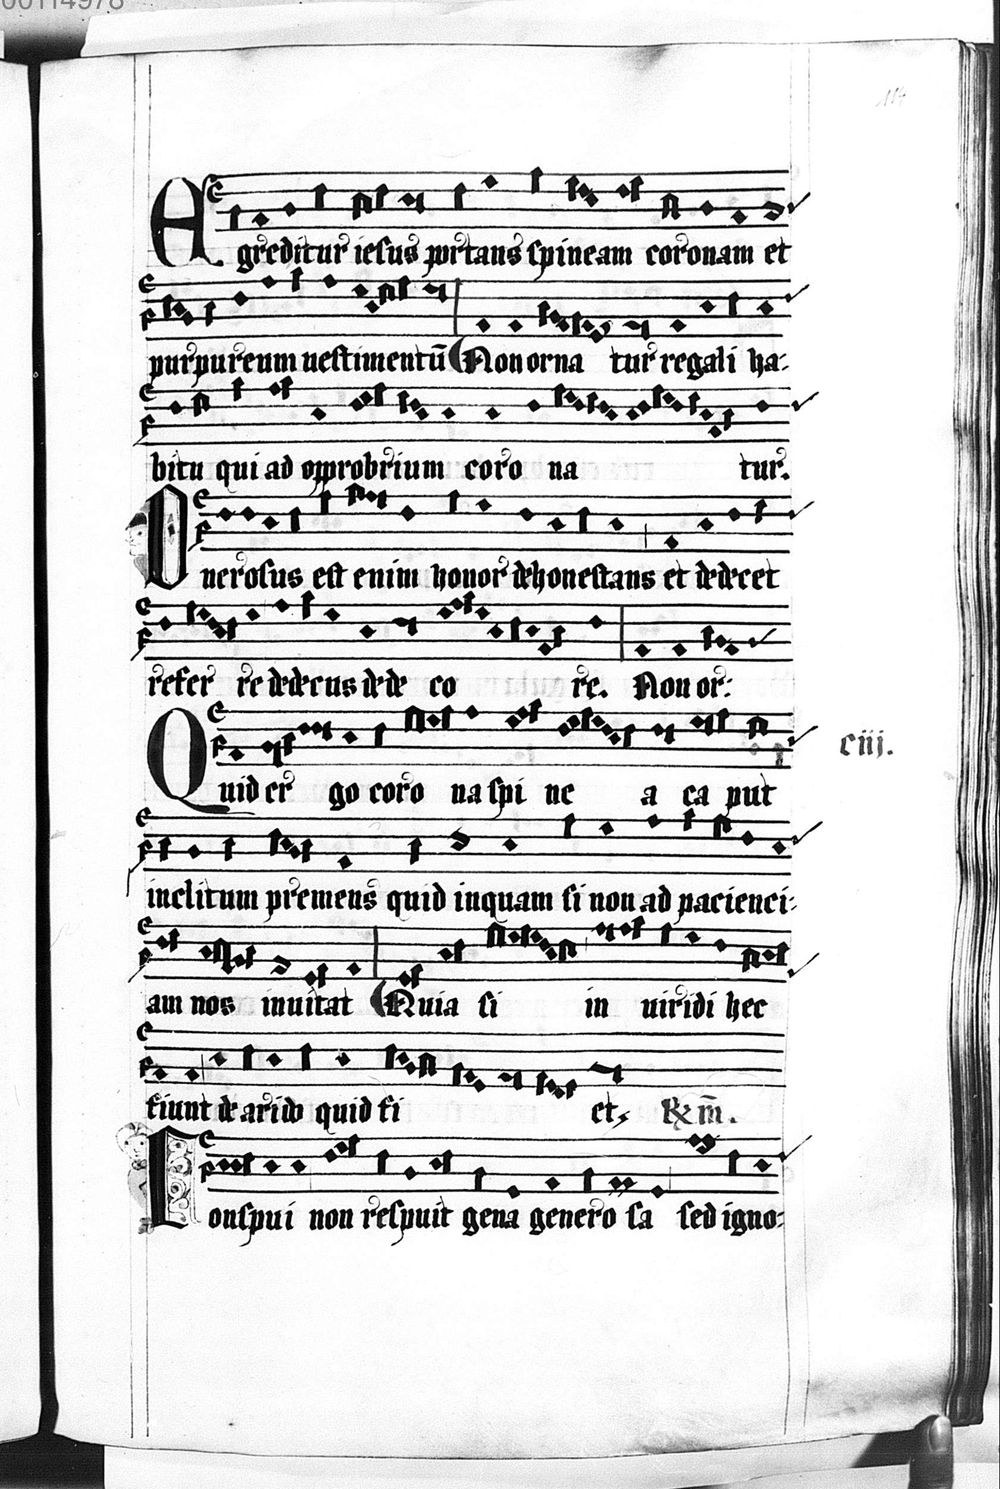 00114978
114
Agreditur iesus portans spineam coronam et
purpureum uestimentū Non orna tur regali ha-
bitu qui ad opprobrium coro na tur.
Onerosus est enim honor dehonestans et dedecet
refer re dedecus dede co re. Non or:
Quid er go coro na spi ne a ca put
ciij.
inclitum premens quid inquam si non ad pacienci-
am nos inuitat Quia si in uiridi hec
fiunt de arido quid fi et, ℟ m̄.
Conspui non respuit gena genero sa sed igno-